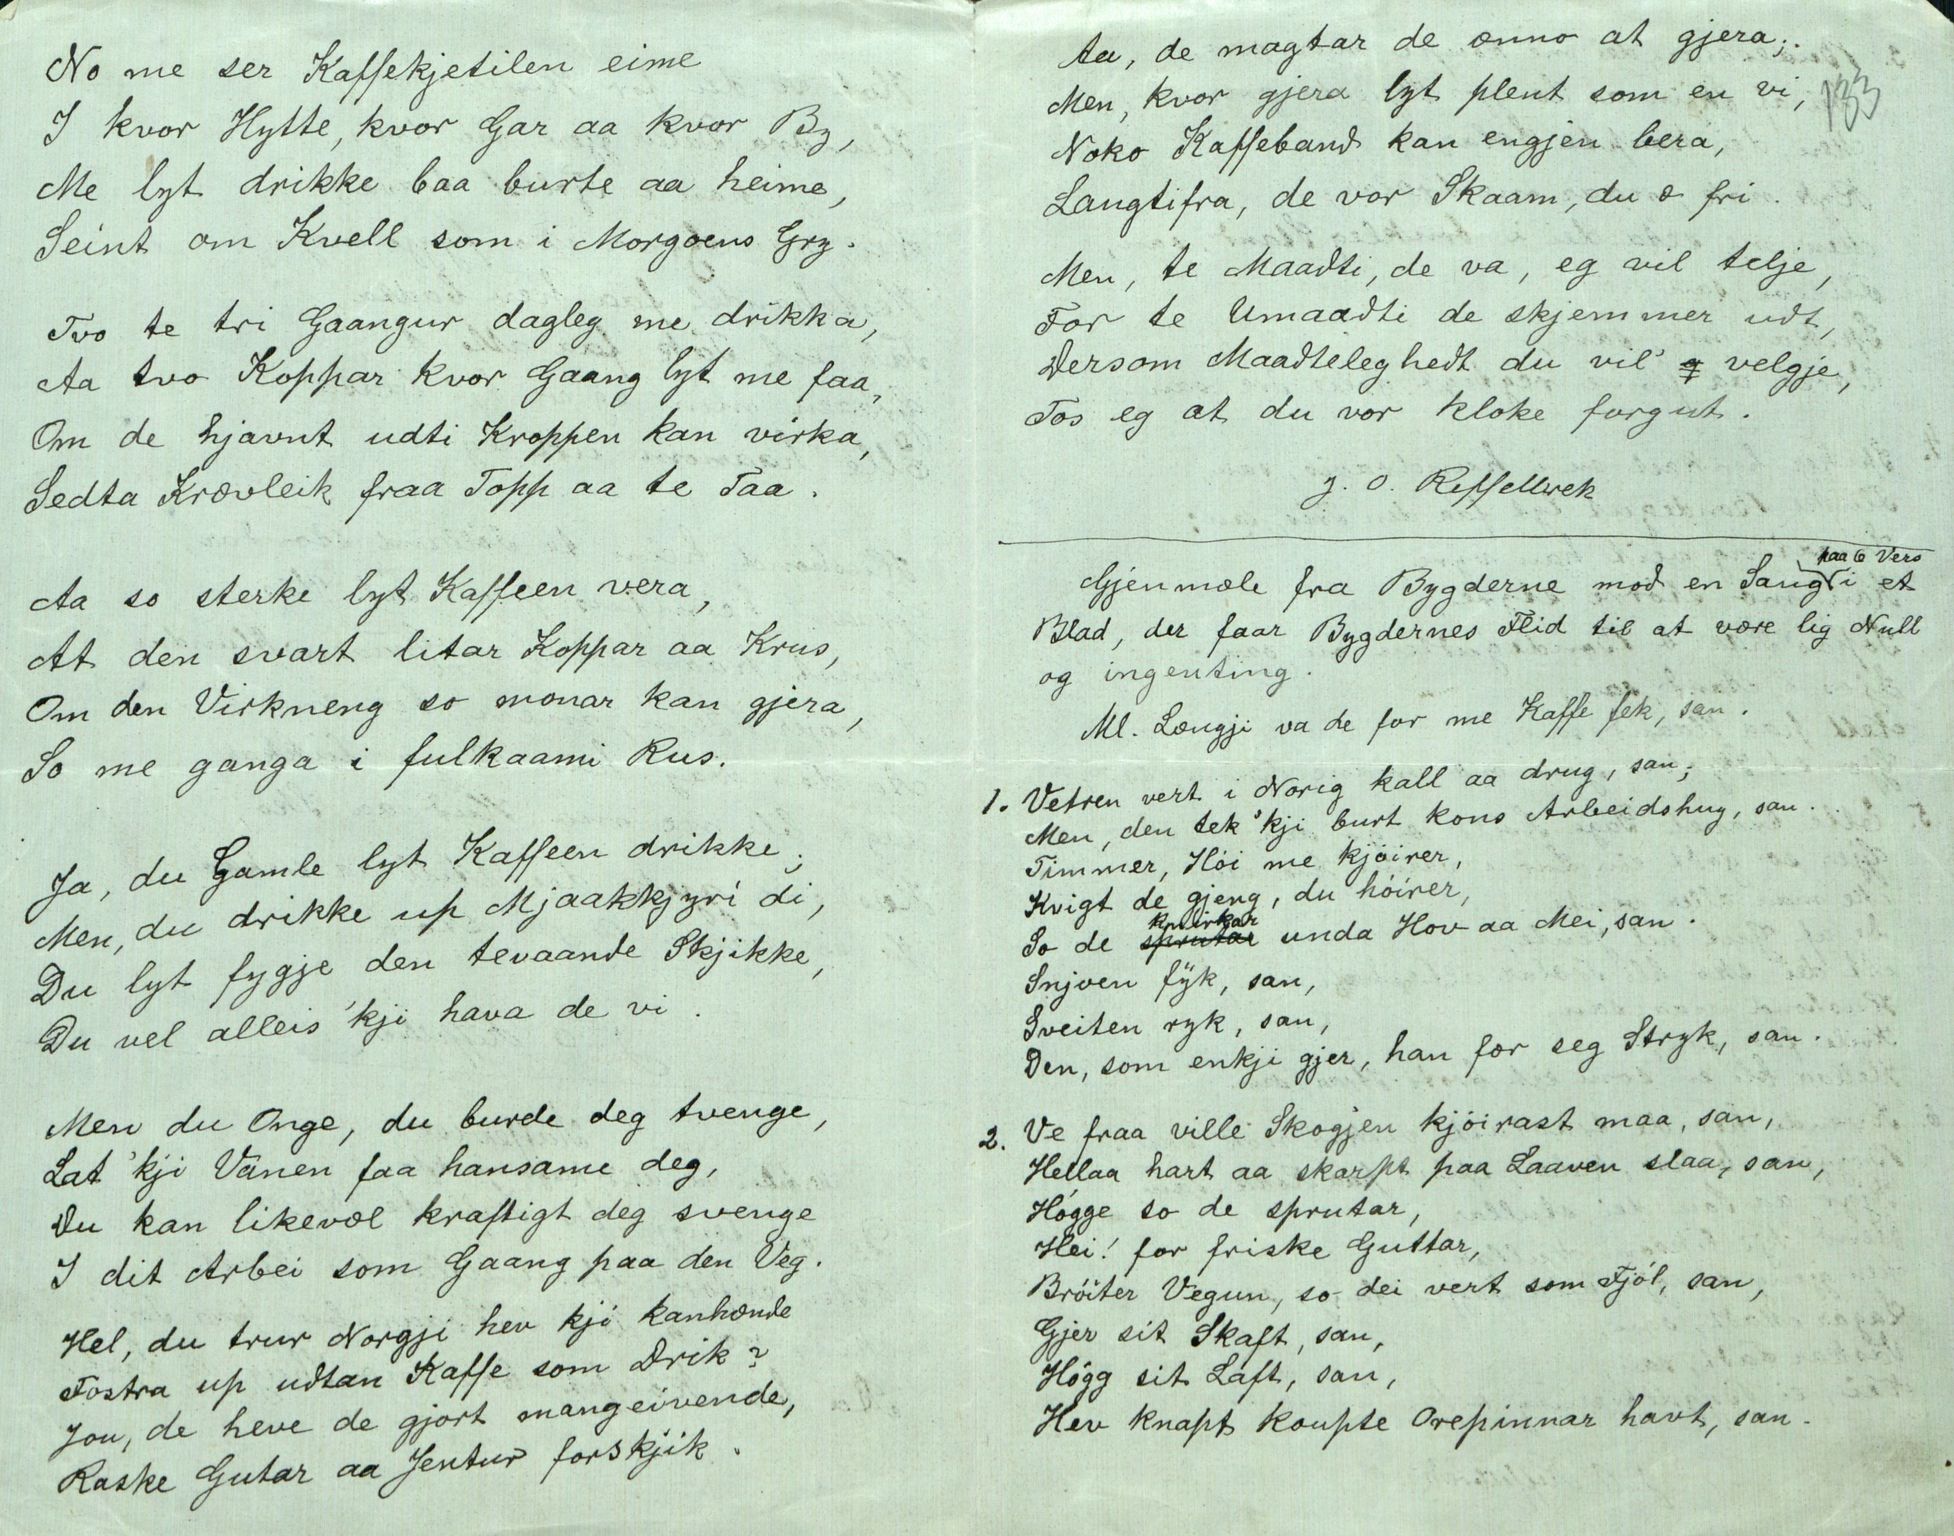 No me ser Kaffekjetilen eime
I kvor Hytte, kvor Gar aa kvor By,
Me lyt drikke baa burte aa heime,
Seint om Kvell som i Morgoens Gry.
Tvo te tri Gaangur dagleg me drikka,
Aa tvo Koppar kvor Gaang lyt me faa,
Om de hjavnt udti Kroppen kan virka,
Sedta Krævleik fraa Topp aa te Taa.
Aa so sterke lyt Kaffeen vera,
At den svart litar Koppar aa Krus,
Om den Virkneng so monar kan gjera,
So me ganga i fulkaami Rus.
Ja, du Gamle lyt Kaffeen drikke;
Men, du drikke up Mjaakkjyri di,
Du lyt fygje den tevaande Skjikke,
Du vel alleis 'kji hava de vi.
Men du Onge, du burde deg tvenge,
Lat 'kji Vanen faa hansame deg,
Du kan likevæl kraftigt deg svenge
I dit Arbei som Gaang paa den Veg.
Hel, du trur Norgji hev kji kanhænde
Fostra up udtan Kaffe som Drik?
Jou, de heve de gjort mangeivende,
Raske Gutar aa Jentur forskjik.
Aa, de magtar de ænno at gjera;
Men, kvor gjera lyt plent som en vi,
Noko Kaffeband kan engjen bera,
Langtifra, de vor Skaam, du æ fri.
Men, te Maadti, de va, eg vil telje,
For te Umaadti de skjemmer udt,
Dersom Maadteleghedt du vil velgje,
Tos eg at du vor kloke forgut.
133
Gjenmæle fra Bygderne mod en Sang paa 6 Vers i et
Blad, der faar Bygdernes Flid til at være lig Null
og ingenting.
Ml. Længji va de for me Kaffe fek, san.
1. Vetren vert i Norig kall aa drug, san;
Men, den tek 'kji burt kons Arbeidshug, san.
Timmer, Hói me kjóirer,
Kvigt de gjeng, du hóirer,
So de sprutar knirkar unda Hov aa Mei, san.
Snjoen fÿk, san,
Sveiten ryk, san,
Den, som enkji gjer, han fær seg Stryk, san.
2. Ve fraa ville Skogjen kjóirast maa, san,
Hellaa hart aa skarpt paa Laaven slaa, san,
Hógge so de sprutar,
Hei! for friske Guttar,
Bróiter Vegun, so dei vert som Fjól, san,
Gjer sit Skaft, san,
Hógg sit Laft, san,
Hev knapt koupte Orepinnar havt, san.